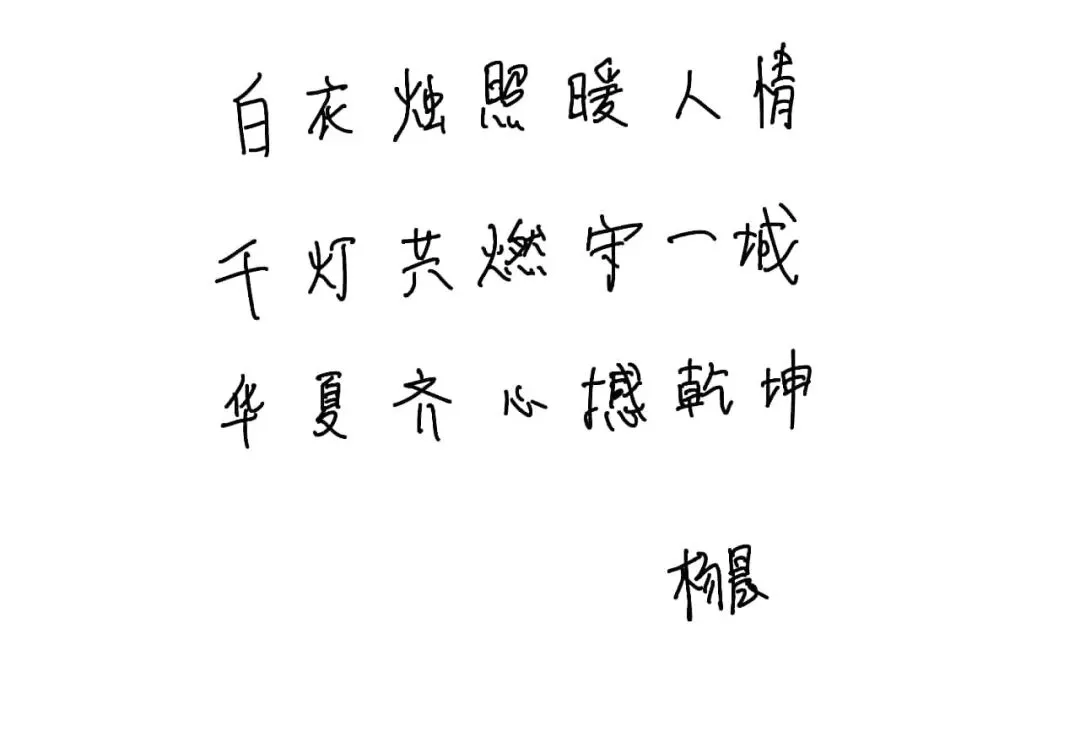 白衣烛照暖人情
千灯共燃守一城
华夏齐心撼乾坤
杨晨